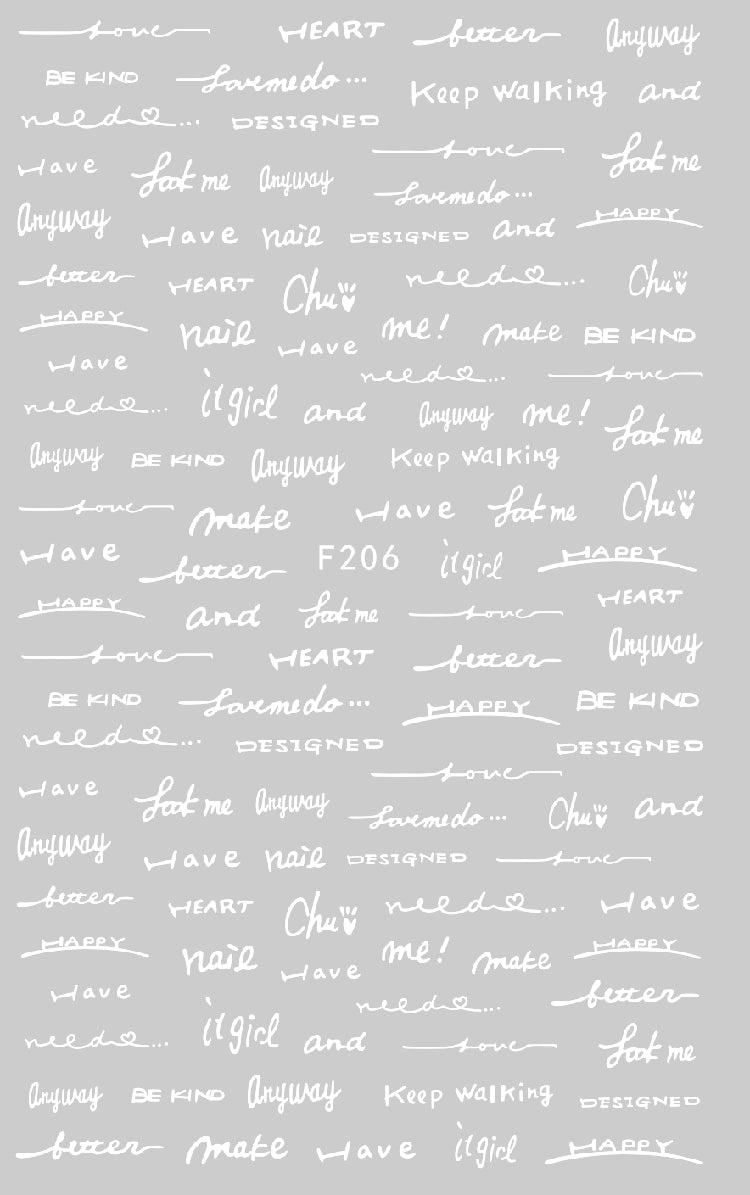 Love HEART better Anyway
BE KIND Love me do ...
Keep Walking and
need ... DESIGNED
Love Look me
Have Look me Anyway
Love me do ...
Anyway Have nail DESIGNED and HAPPY
better HEART Chu need ... Chu
HAPPY nail Have me! make BE KIND
Have need ... Love
need ... it girl and Anyway me! Look me
Anyway BE KIND Anyway Keep Walking
Love make Have Look me Chu
Have better F206 it girl HAPPY
HAPPY and Look me Love HEART
Love HEART better Anyway
BE KIND Love me do ... HAPPY BE KIND
need ... DESIGNED DESIGNED
Love
Have Look me Anyway Love me do ... Chu and
Anyway Have nail DESIGNED Love
better HEART Chu need ... Have
HAPPY nail Have me! make HAPPY
Have need ... better
need ... it girl and Love Look me
Anyway BE KIND Anyway Keep Walking DESIGNED
better make Have it girl HAPPY